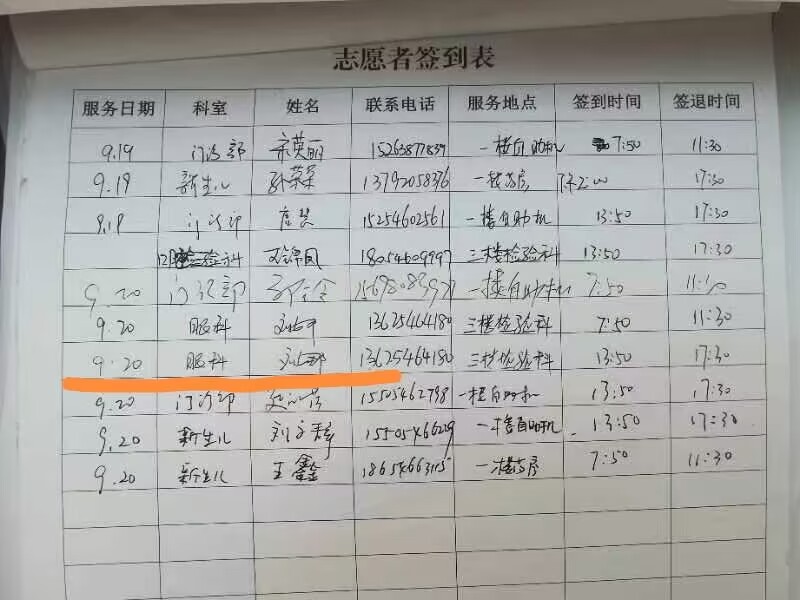 志愿者签到表
服务日期 科室 姓名 联系电话 服务地点 签到时间 签退时间
9.19 门诊部 宋英丽 15263877839 一楼自助机 7:50 11:30
9.19 新生儿 13792058376 一楼药房 17:30
9.19 门诊部 15254602561 一楼自助机 13:50 17:30
检验科 18054609997 三楼检验科 13:50 17:30
9.20 门诊部 一楼自助机 7:50
9.20 眼科 13625464180 三楼检验科 7:50 11:30
9.20 眼科 13625464180 三楼检验科 13:50 17:30
9.20 门诊部 15505462798 一楼自助机 13:50 17:30
9.20 新生儿 一楼自助机 13:50 17:30
9.20 新生儿 王鑫 一楼药房 7:50 11:30